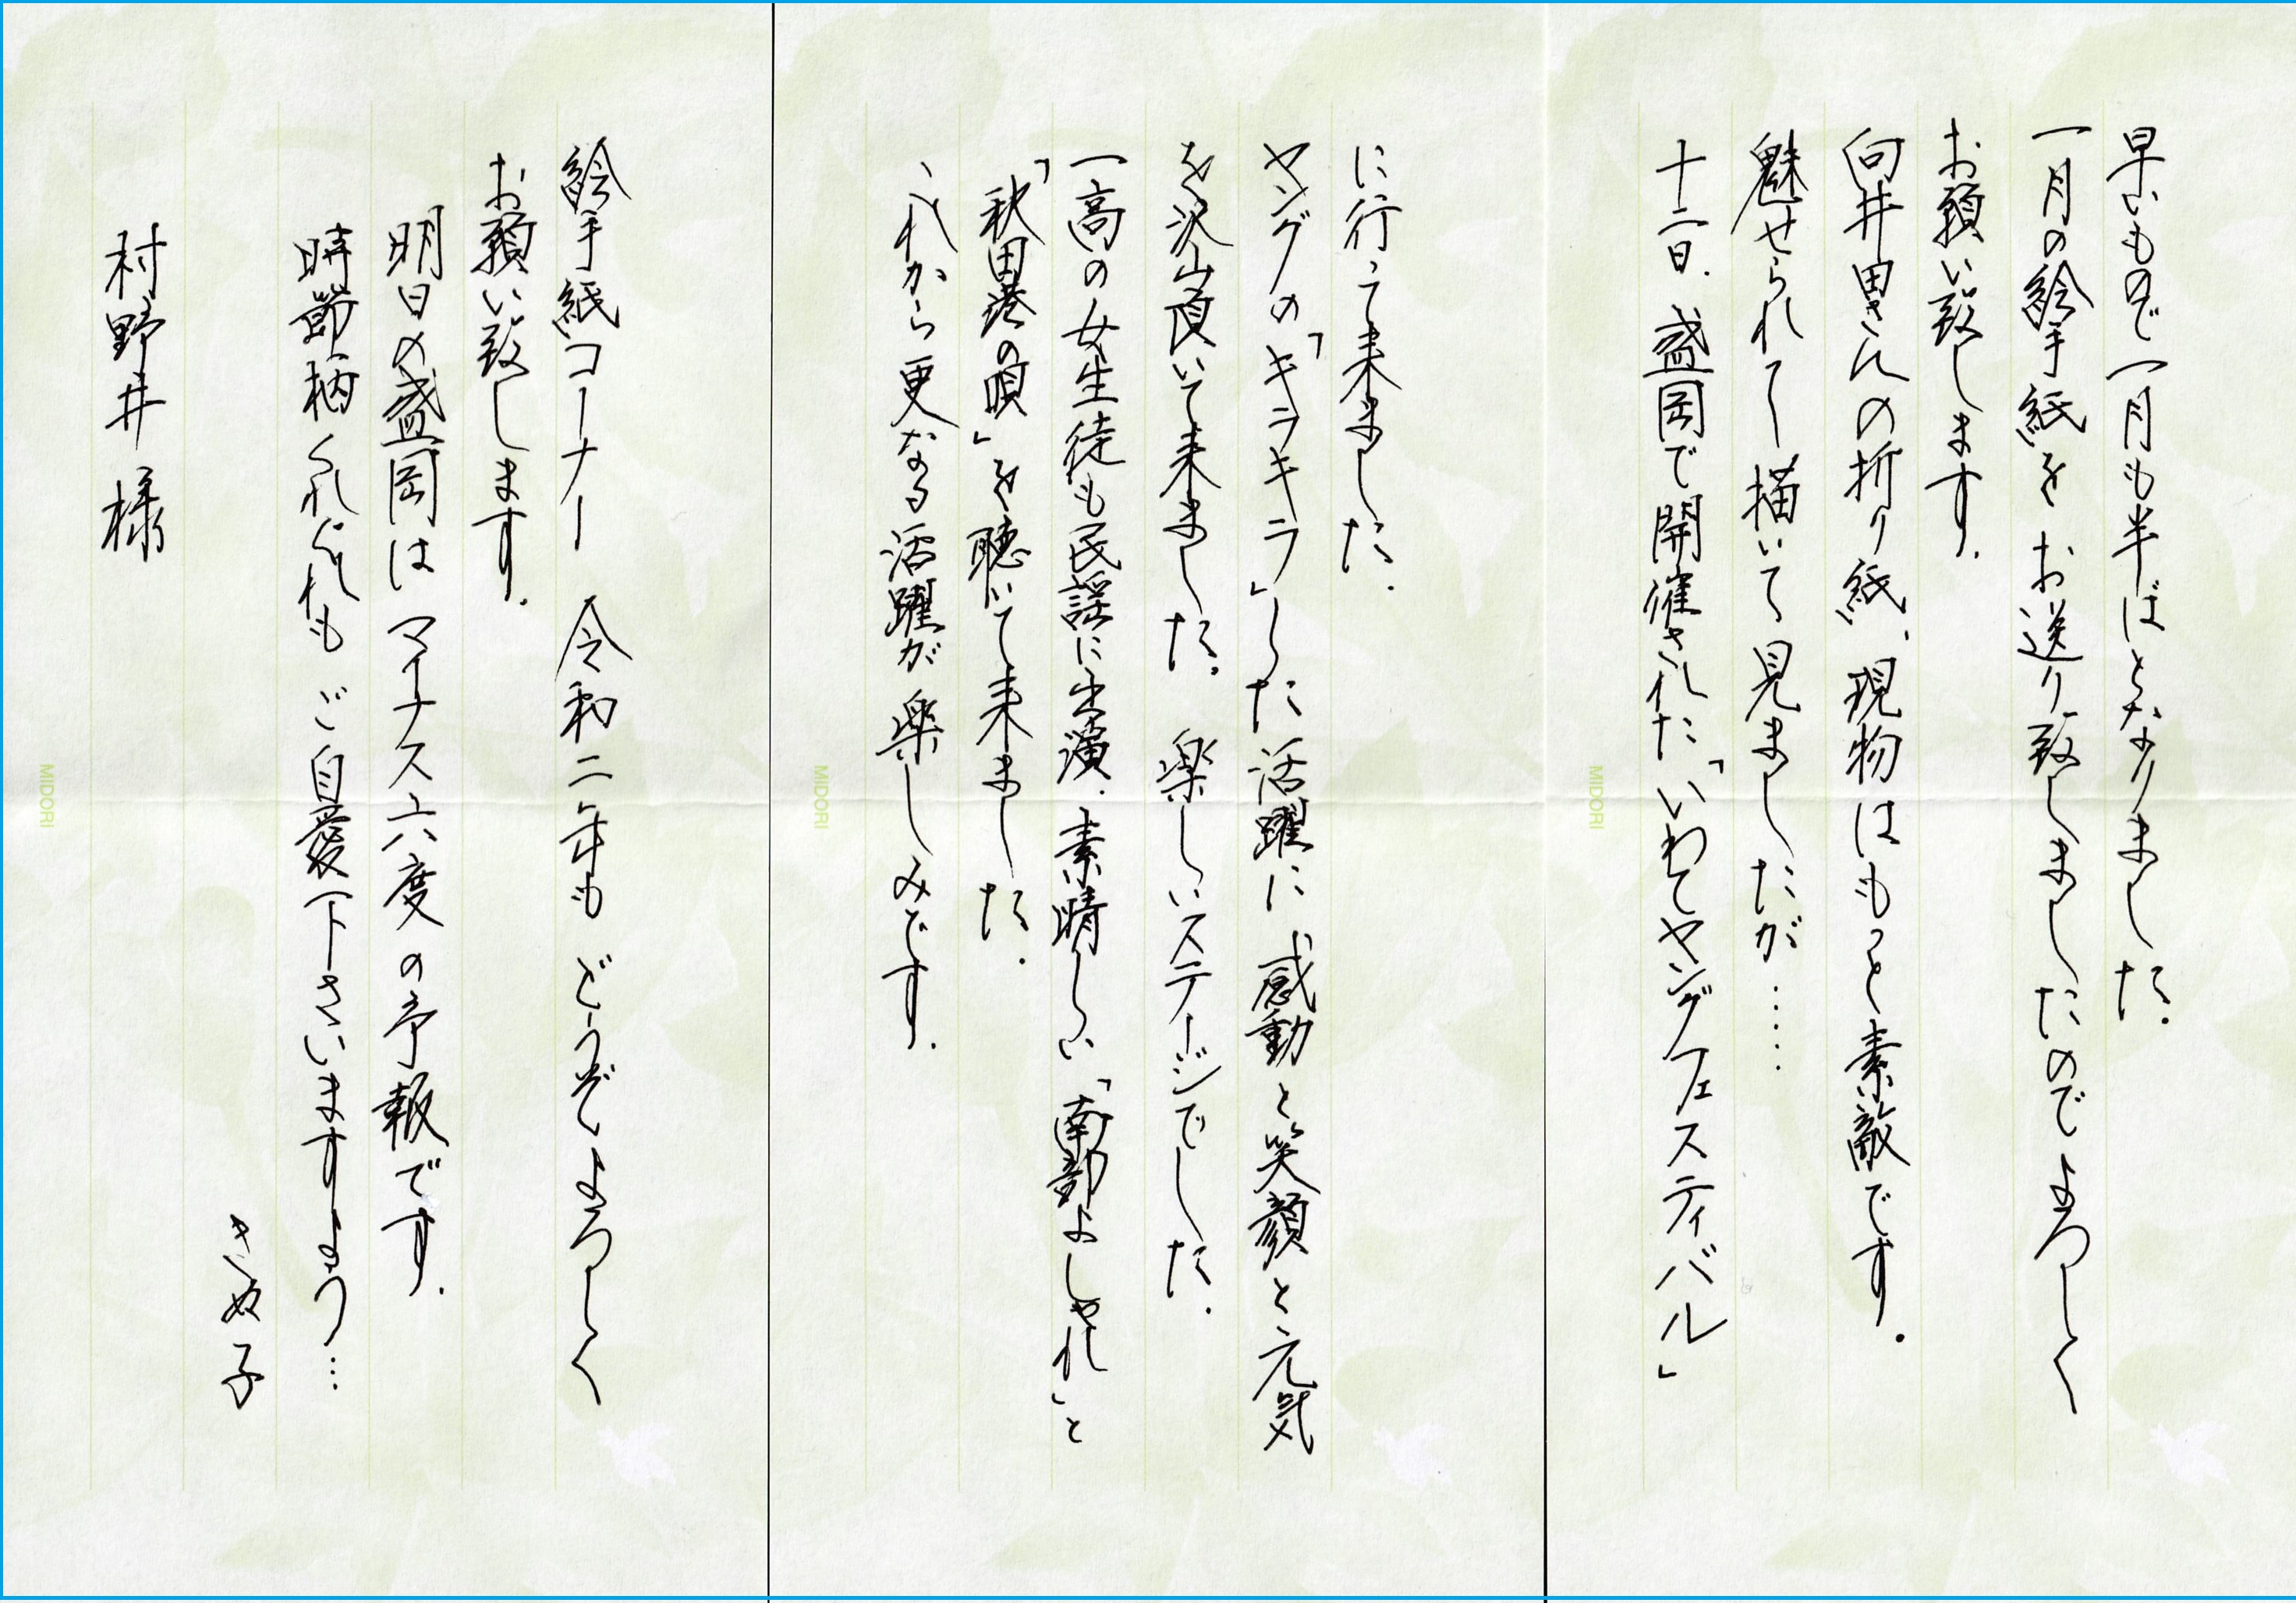 早いもので一月も半ばとなりました.
一月の絵手紙をお送り致しましたのでよろしく
お願い致します.
向井田さんの折り紙、現物はもっと素敵です.
魅せられて描いて見ましたが……
十二日.盛岡で開催された「いわてヤングフェスティバル」
に行って来ました.
ヤングの「キラキラ」した活躍に感動と笑顔と元気
を沢山頂いて来ました.楽しいステージでした.
一高の女生徒も民謡に出演.素晴しい「南部よしゃれ」と
「秋田港の唄」を聴いて来ました.
これから更なる活躍が楽しみです.
絵手紙コーナー令和二年もどうぞよろしく
お願い致します.
明日の盛岡はマイナス六度の予報です.
時節柄くれぐれもご自愛下さいますよう…
きぬ子
村野井様
MIDORI
MIDORI
MIDORI